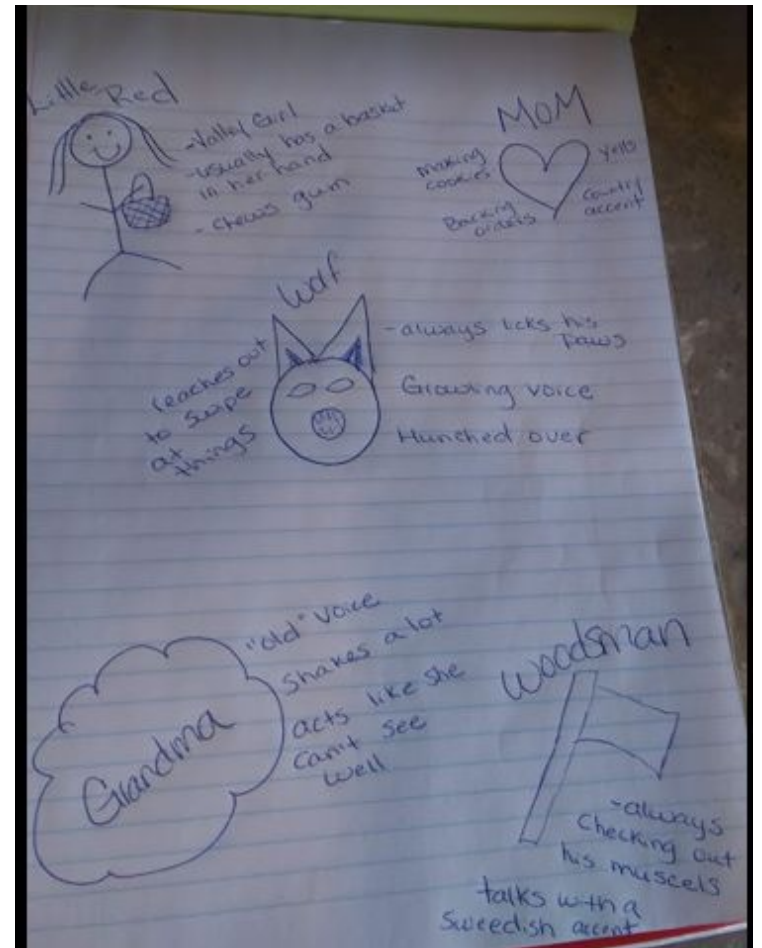 Little Red
-Valley Girl
-usually has a basket
in her hand
-chews gum
MOM
making
cookies
Yells
Country
accent
Barking
orders
Wolf
reaches out
to swipe
at
things
-always licks his
Paws
Growling voice
Hunched over
Grandma
"old" voice
Shakes a lot
acts like she
can't see
well
Woodsman
-always
Checking out
his muscels
talks with a
Sweedish accent